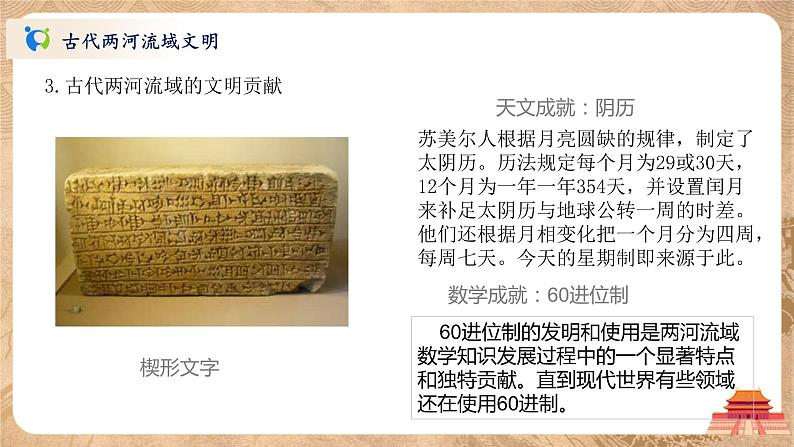 古代两河流域文明
3.古代两河流域的文明贡献
楔形文字
天文成就：阴历
苏美尔人根据月亮圆缺的规律，制定了
太阴历。历法规定每个月为29或30天，
12个月为一年一年354天，并设置闰月
来补足太阴历与地球公转一周的时差。
他们还根据月相变化把一个月分为四周，
每周七天。今天的星期制即来源于此。
数学成就：60进位制
60进位制的发明和使用是两河流域
数学知识发展过程中的一个显著特点
和独特贡献。直到现代世界有些领域
还在使用60进制。